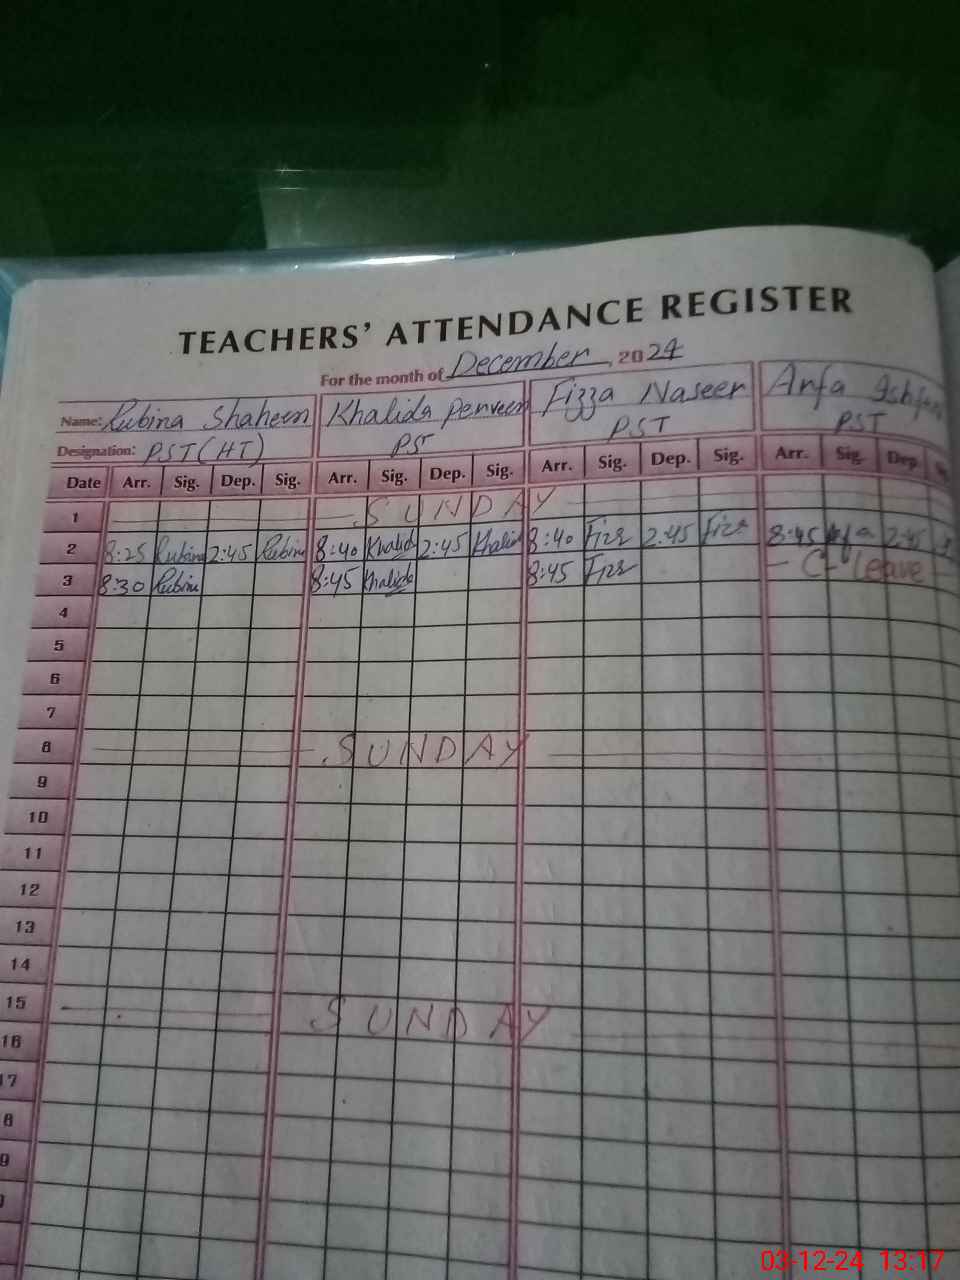 TEACHERS' ATTENDANCE REGISTER
For the month of December, 2024
Name: Rubina Shaheen Khalida Perveen Fizza Naseer Arfa
Designation: PST (HT) PST PST PST
Date Arr. Sig. Dep. Sig. Arr. Sig. Dep. Sig. Arr. Sig. Dep. Sig. Arr. Sig. Dep.
1 SUNDAY
2 8:25 Rubina 2:45 Rubina 8:40 Khalid 2:45 Khalid 8:40 Fizz 2:45 Fizz 8:45 Arfa 2:45
3 8:30 Rubina 8:45 Khalida 8:45 Fizz C- Leave
4
5
6
7
8 SUNDAY
9
10
11
12
13
14
15 SUNDAY
16
17
8
9
03-12-24 13:17